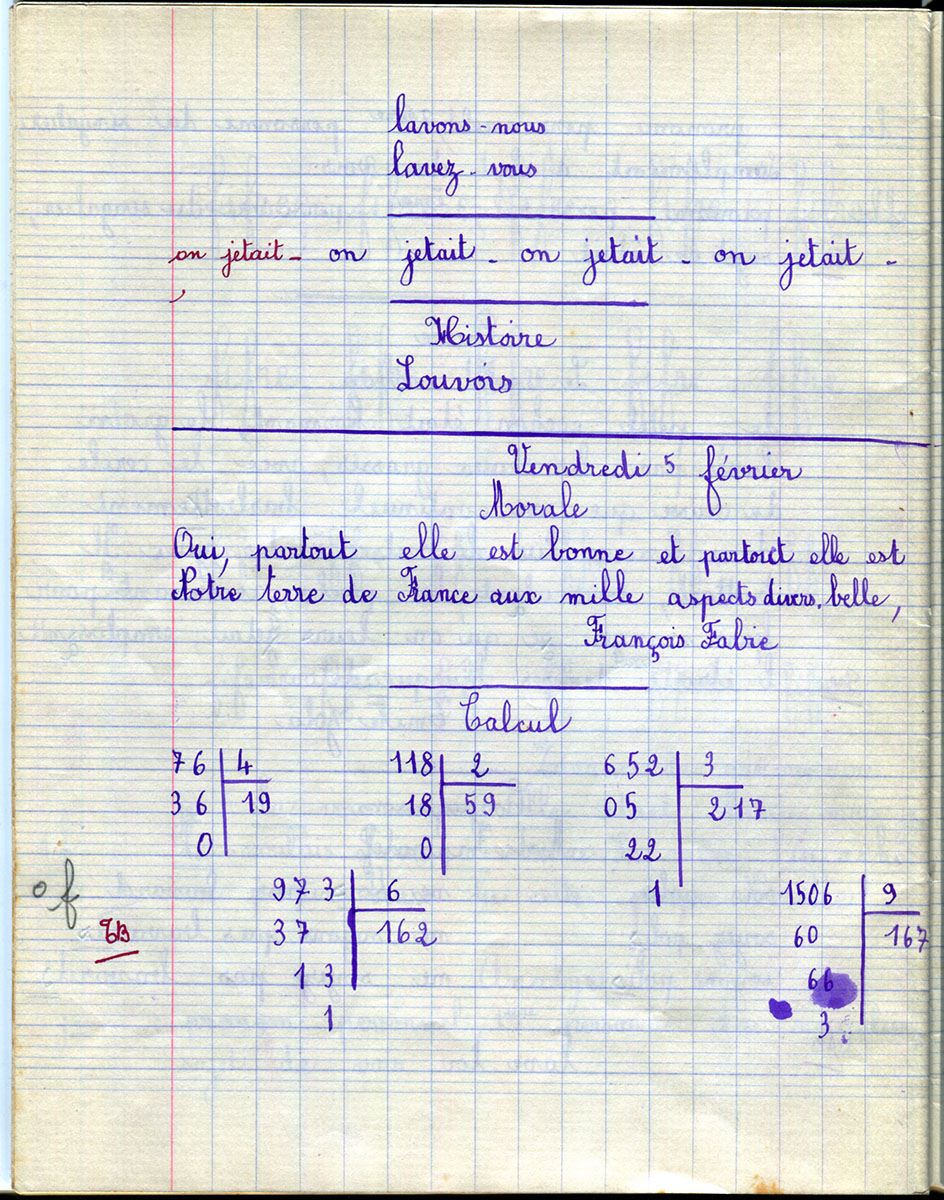 lavons-nous
lavez-vous
on jetait - on jetait - on jetait - on jetait -
Histoire
Louvois
Vendredi 5 février
Morale
Oui, partout elle est bonne et partout elle est
Notre terre de France aux mille aspects divers. belle,
François Fabie
Calcul
76 4 118 2 652 3
36 19 18 59 05 217
0 0 22
973 6 1 1506 9
TB 37 162 60 167
13 66
1 3